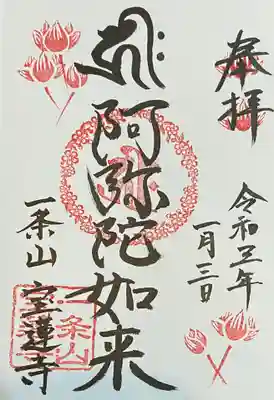 奉拝
令和三年
一月三日
阿弥陀如来
一条山
宝蓮寺